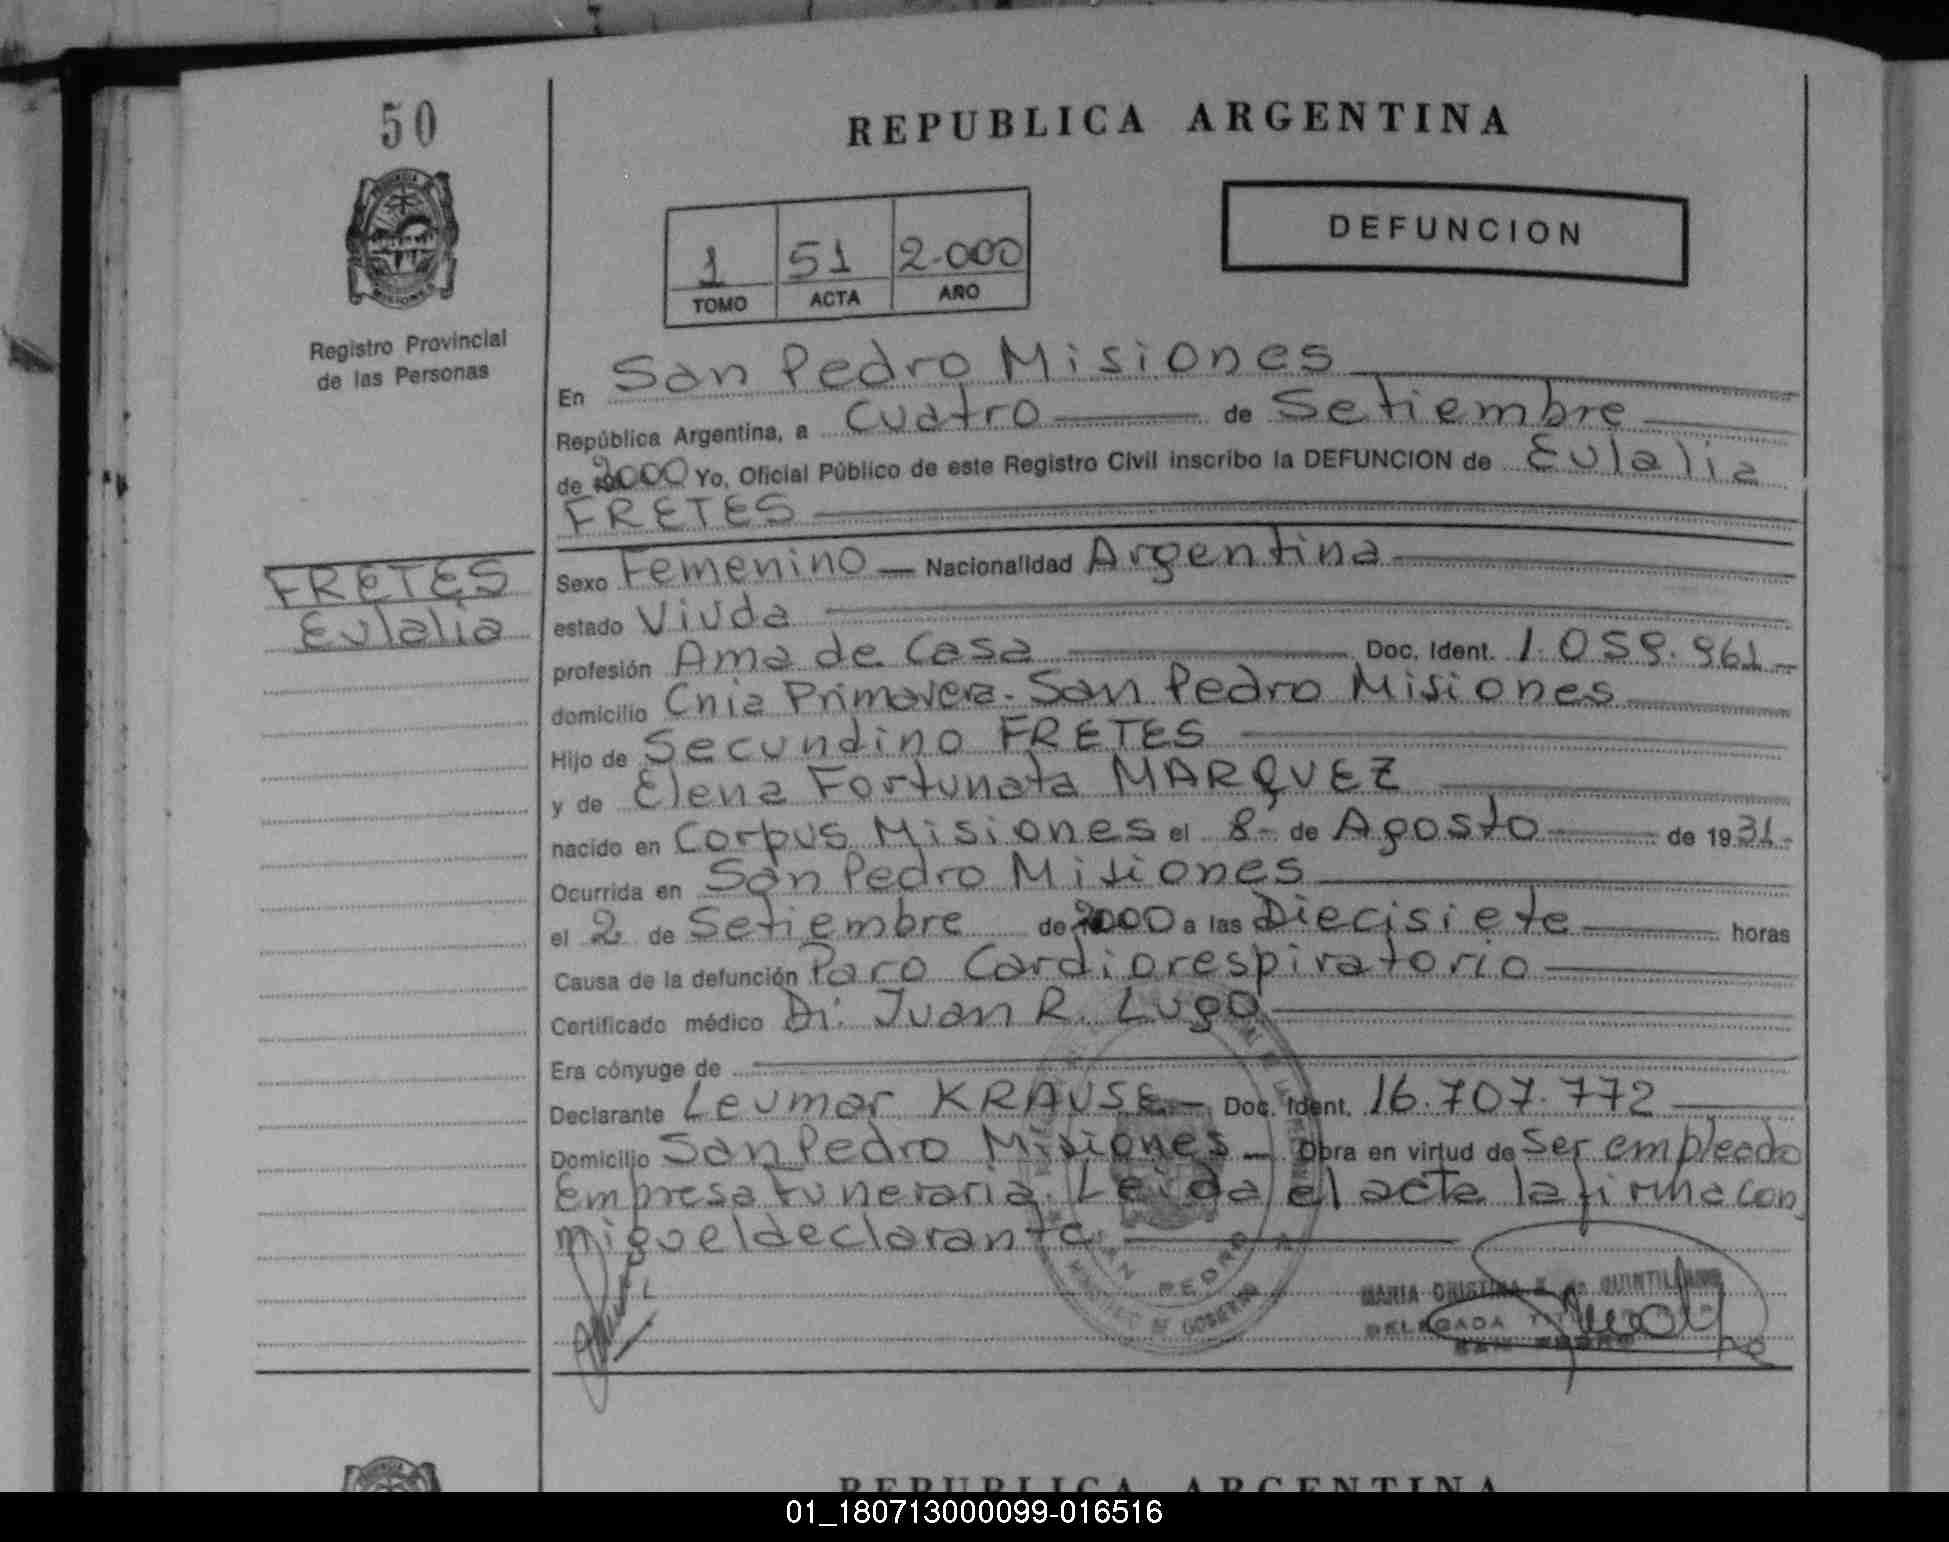 50
REPUBLICA ARGENTINA
DEFUNCION
1 51 2.000
TOMO ACTA AÑO
Registro Provincial
de las Personas
En San Pedro Misiones
República Argentina, a cuatro de Setiembre
de 2000 Yo, Oficial Público de este Registro Civil inscribo la DEFUNCION de Eulalia
FRETES
FRETES
Eulalia
Sexo Femenino Nacionalidad Argentina
estado Viuda
profesión Ama de Casa Doc. Ident. 1.059.961
domicilio Cnia Primavera. San Pedro Misiones
Hijo de Secundino FRETES
y de Elena Fortunata MARQUEZ
nacido en Corpus Misiones el 8 de Agosto de 1931
Ocurrida en San Pedro Misiones
el 2 de Setiembre de 2000 a las Diecisiete horas
Causa de la defunción Paro Cardiorespiratorio
Certificado médico Dr. Juan R. Lugo
Era cónyuge de
Declarante Leumar KRAUSE Doc. Ident. 16.707.772
Domicilio San Pedro Misiones Obra en virtud de Ser empleado
Empresa Funeraria. Leida el acta la firma con
migo el declarante
SAN PEDRO
MINISTERIO DE GOBIERNO
MARIA CRISTINA DE QUINTILLANO
DELEGADA
SAN PEDRO
REPUBLICA ARGENTINA
01_180713000099-016516